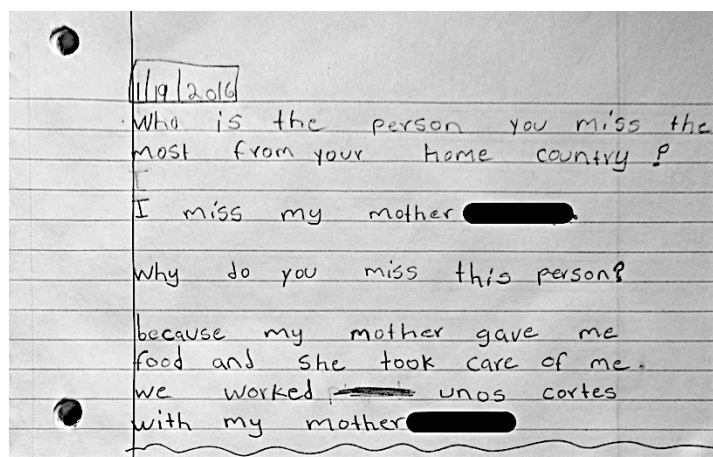 1/19/2016
Who is the person you miss the
most from your home country?
I miss my mother
Why do you miss this person?
because my mother gave me
food and she took care of me.
we worked unos cortes
with my mother